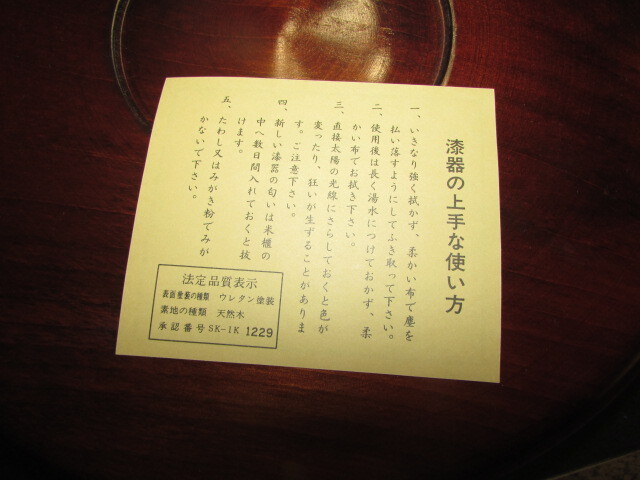 漆器の上手な使い方
一、いきなり強く拭かず、柔かい布で塵を
払い落すようにしてふき取って下さい。
二、使用後は長く湯水につけておかず、柔
かい布でお拭き下さい。
三、直接太陽の光線にさらしておくと色が
変ったり、狂いが生ずることがありま
す。ご注意下さい。
四、新しい漆器の匂いは米櫃の
中へ数日間入れておくと抜
けます。
五、たわし又はみがき粉でみが
かないで下さい。
法定品質表示
表面塗装の種類 ウレタン塗装
素地の種類 天然木
承認番号 SK-1K 1229